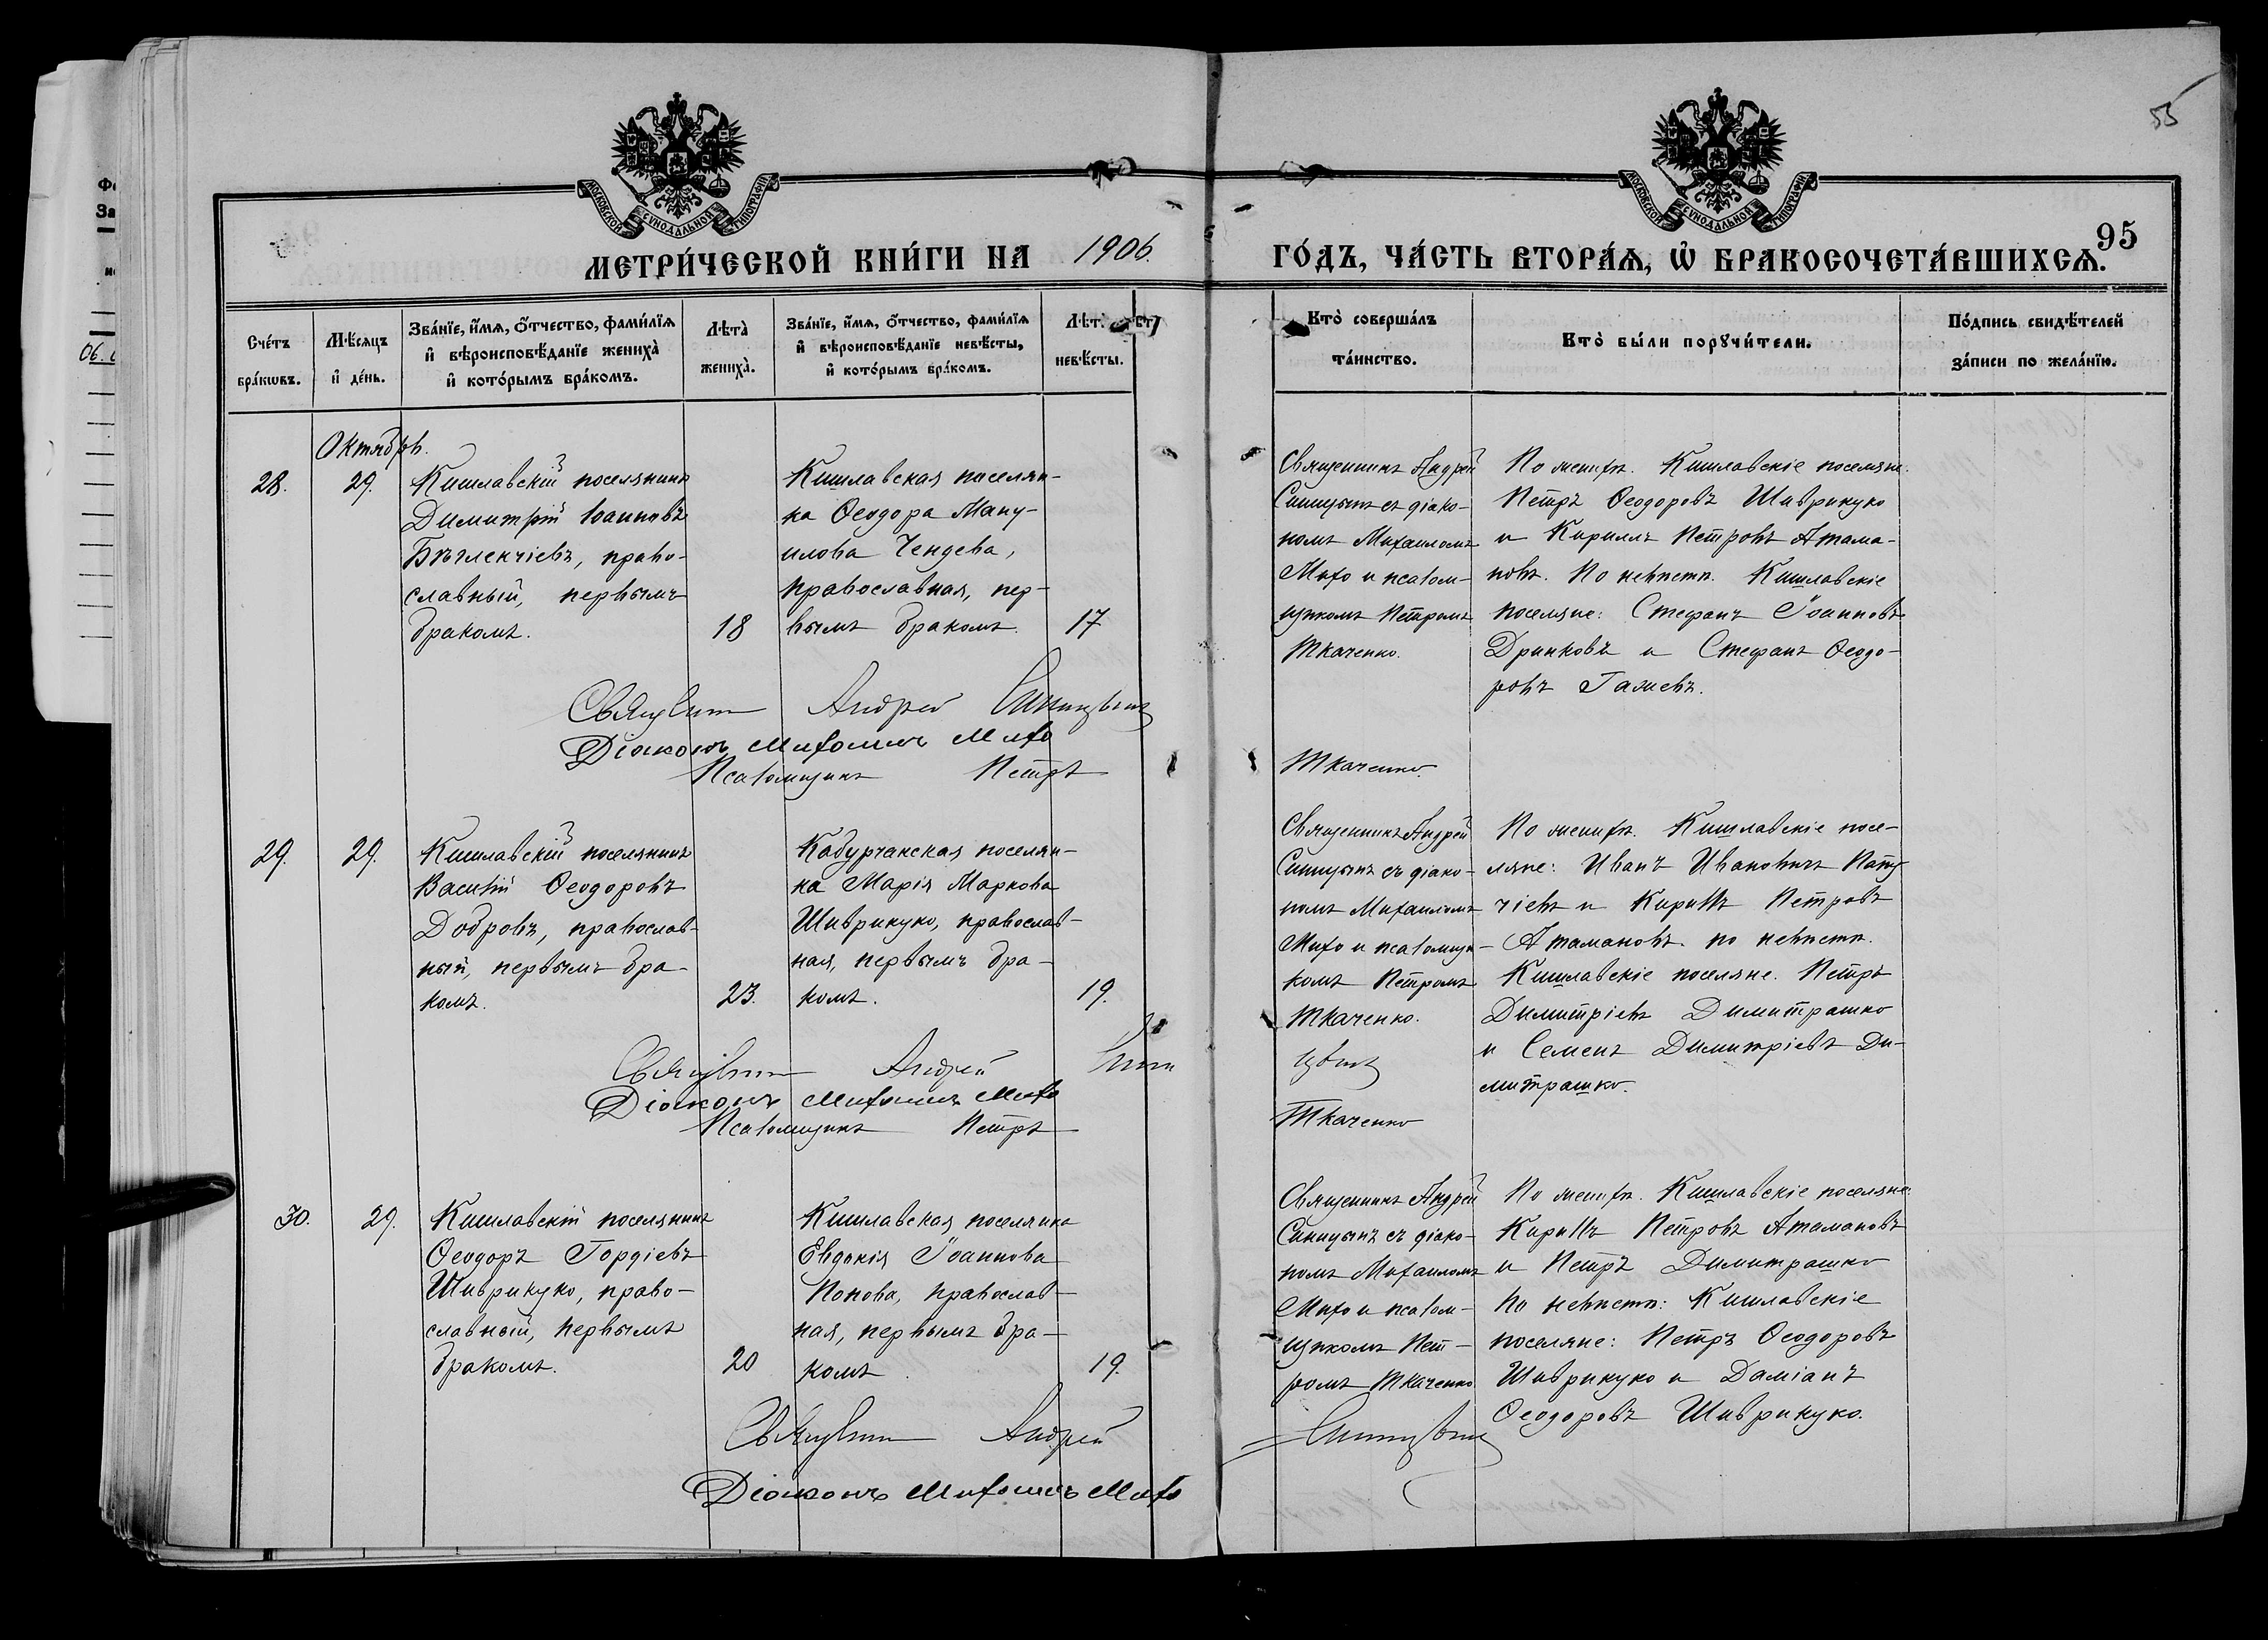 55
95
МОСКОВСКОЙ СѴНОДАЛЬНОЙ ТИПОГРАФІИ
МОСКОВСКОЙ СѴНОДАЛЬНОЙ ТИПОГРАФІИ
МЕТРИ́ЧЕСКОЙ КНИ́ГИ НА 1906. ГО́ДЪ, ЧА́СТЬ ВТОРА́Ѧ, Ѽ БРАКОСОЧЕТА́ВШИХСѦ.
Сче́тъ
бра́кѡвъ.
Мѣ́сяцъ
и҆ де́нь.
Зва́нїе, и҆́мя, о҆́тчество, фами́лїя
и҆ вѣроисповѣ́данїе жениха̀
и҆ кото́рымъ бра́комъ.
Лѣта̀
жениха̀.
Зва́нїе, и҆́мя, о҆́тчество, фами́лїя
и҆ вѣроисповѣ́данїе невѣ́сты,
и҆ кото́рымъ бра́комъ.
Лѣт
невѣ́сты.
Кто̀ соверша́лъ
та́инство.
Кто̀ бы́ли порꙋчи́тели.
По́дпись свидѣ́телей
за́писи по жела́нїю.
Октябрь.
28.
29.
Кишлавскій поселянинъ
Димитрій Іоанновъ
Бѣгленчіевъ, право-
славный, первымъ
бракомъ.
18
Кишлавская поселян-
ка Ѳеодора Ману-
илова Чендева,
православная, пер-
вымъ бракомъ.
17
Священникъ Андрей
Синицынъ съ діако-
номъ Михаиломъ
Михо и псалом-
щикомъ Петромъ
Ткаченко.
По жениху. Кишлавскіе поселяне.
Петръ Ѳеодоровъ Шиврикуко
и Кириллъ Петровъ Атама-
новъ. По невѣстѣ. Кишлавскіе
поселяне: Стефанъ Іоанновъ
Дринковъ и Стефанъ Ѳеодо-
ровъ Гажевъ.
Священникъ Андрей Синицынъ
Діаконъ Михаилъ Михо
Псаломщикъ Петръ Ткаченко.
29.
29.
Кишлавскій поселянинъ
Василій Ѳеодоровъ
Добровъ, православ-
ный, первымъ бра-
комъ.
23.
Кабурчакская поселян-
ка Марія Маркова
Шиврикуко, православ-
ная, первымъ бра-
комъ.
19.
Священникъ Андрей
Синицынъ съ діако-
номъ Михаиломъ
Михо и псаломщи-
комъ Петромъ
Ткаченко.
По жениху. Кишлавскіе посе-
ляне: Иванъ Ивановичъ Пату-
чіевъ и Кириллъ Петровъ
Атамановъ. по невѣстѣ.
Кишлавскіе поселяне. Петръ
Димитріевъ Димитрашко
и Семенъ Димитріевъ Ди-
митрашко.
Священникъ Андрей Синицынъ
Діаконъ Михаилъ Михо
Псаломщикъ Петръ Ткаченко
30.
29.
Кишлавскій поселянинъ
Ѳеодоръ Гордіевъ
Шиврикуко, право-
славный, первымъ
бракомъ.
20
Кишлавская поселянка
Евдокія Іоаннова
Попова, православ-
ная, первымъ бра-
комъ
19.
Священникъ Андрей
Синицынъ съ діако-
номъ Михаиломъ
Михо и псалом-
щикомъ Пет-
ромъ Ткаченко.
По жениху. Кишлавскіе поселяне.
Кириллъ Петровъ Атамановъ
и Петръ Димитрашко
По невѣстѣ: Кишлавскіе
поселяне: Петръ Ѳеодоровъ
Шиврикуко и Даміанъ
Ѳеодоровъ Шиврикуко.
Священникъ Андрей Синицынъ
Діаконъ Михаилъ Михо